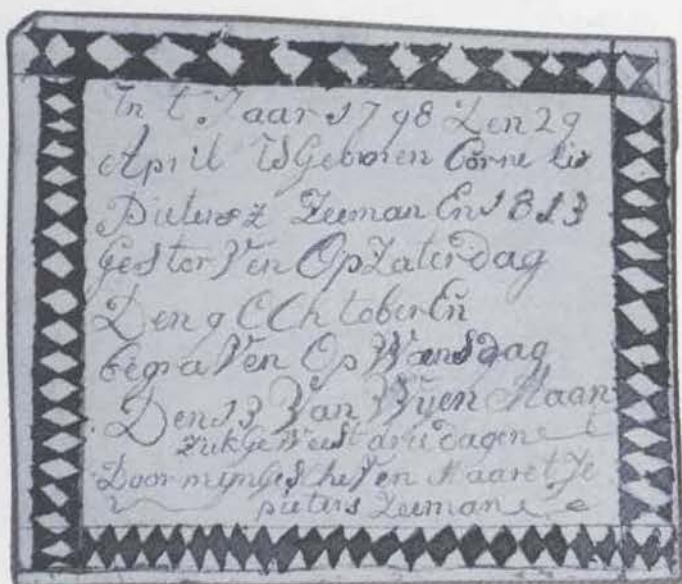 In t Jaar 1798 Den 29
April Is Geboren Corne lis
Pieters Z Zeeman En 1813
gestorVen Op Zaterdag
Den 9 OChtober En
begraVen Op Wansdag
Den 13 Van Wijen Maan
zik geWeest drie dagen
Door mijn gescheVen Maaretje
pieters Zeeman